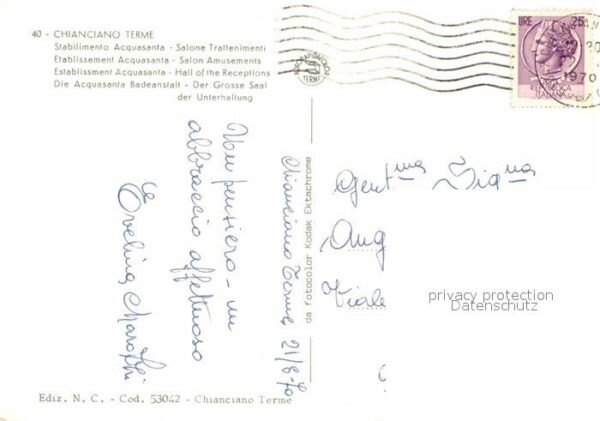 40 - CHIANCIANO TERME
Stabilimento Acquasanta - Salone Trattenimenti
Etablissement Acquasanta - Salon Amusements
Establissment Acquasanta - Hall of the Receptions
Die Acquasanta Badeanstalt - Der Grosse Saal
der Unterhaltung
LIRE 25
REPUBBLICA
ITALIANA
1970
TERNI
Un pensiero - un
abbraccio affettuoso
Evelina
Chianciano Terme 21/8-70
da fotocolor Kodak Ektachrome
Gent.ma Sig.na
Ang
Viale
privacy protection
Datenschutz
Ediz. N. C. - Cod. 53042 - Chianciano Terme